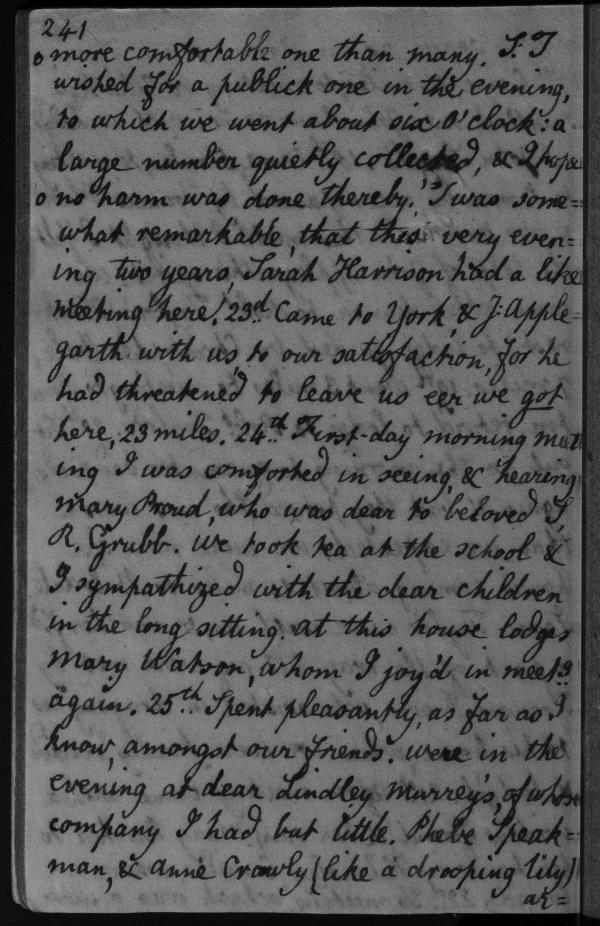 241
more comfortable one than many. S: T
wished for a publick one in the evening,
to which we went about six o'clock: a
large number quietly collected, & I hope
no harm was done thereby. 'Twas some=
what remarkable, that this very even=
ing two years, Sarah Harrison had a like
meeting here. 23.d Came to York, & J: Apple=
garth with us, to our satisfaction, for he
had threatened to leave us eer we got
here, 23 miles. 24.th First-day morning meet
ing I was comforted in seeing, & hearing
Mary Proud, who was dear to beloved S,
R, Grubb. We took tea at the school &
I sympathized with the dear children
in the long sitting. at this house lodges
Mary Watson, whom I joy'd in meetg
again. 25.th Spent pleasantly, as far as I
know, amongst our friends. were in the
evening at dear Lindley Murrey's, of whose
company I had but little. Phebe Speak=
man, & Anne Crowly (like a drooping lily)
ar=